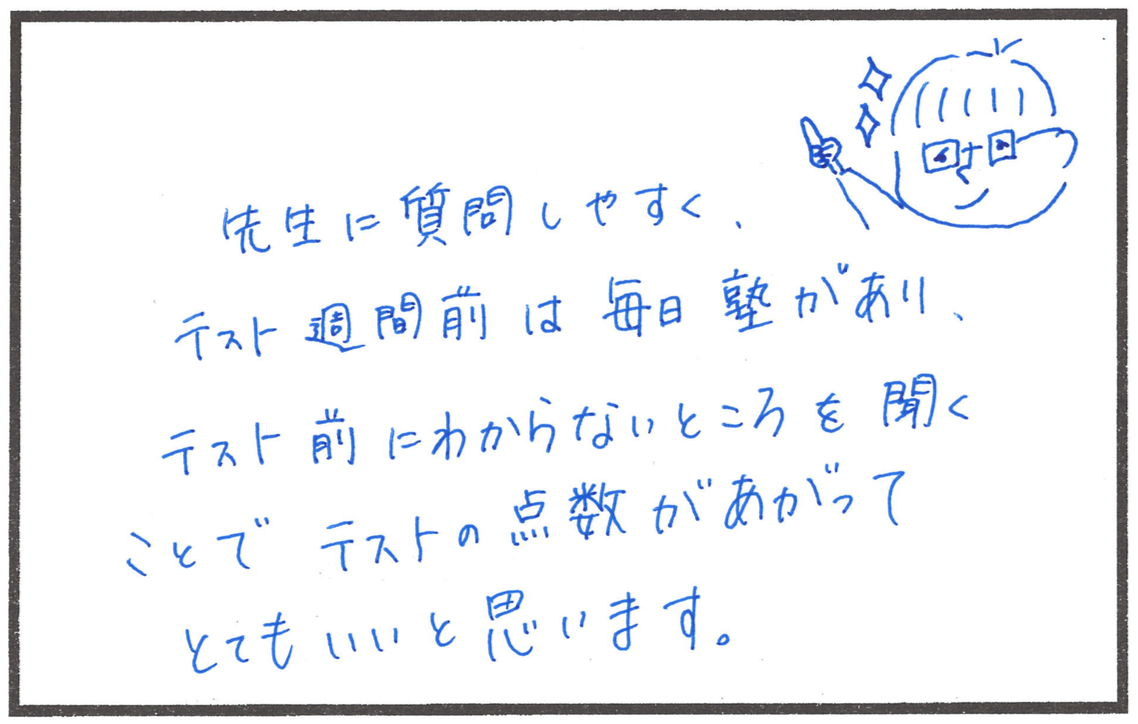 先生に質問しやすく、
テスト週間前は毎日塾があり、
テスト前にわからないところを聞く
ことでテストの点数があがって
とてもいいと思います。